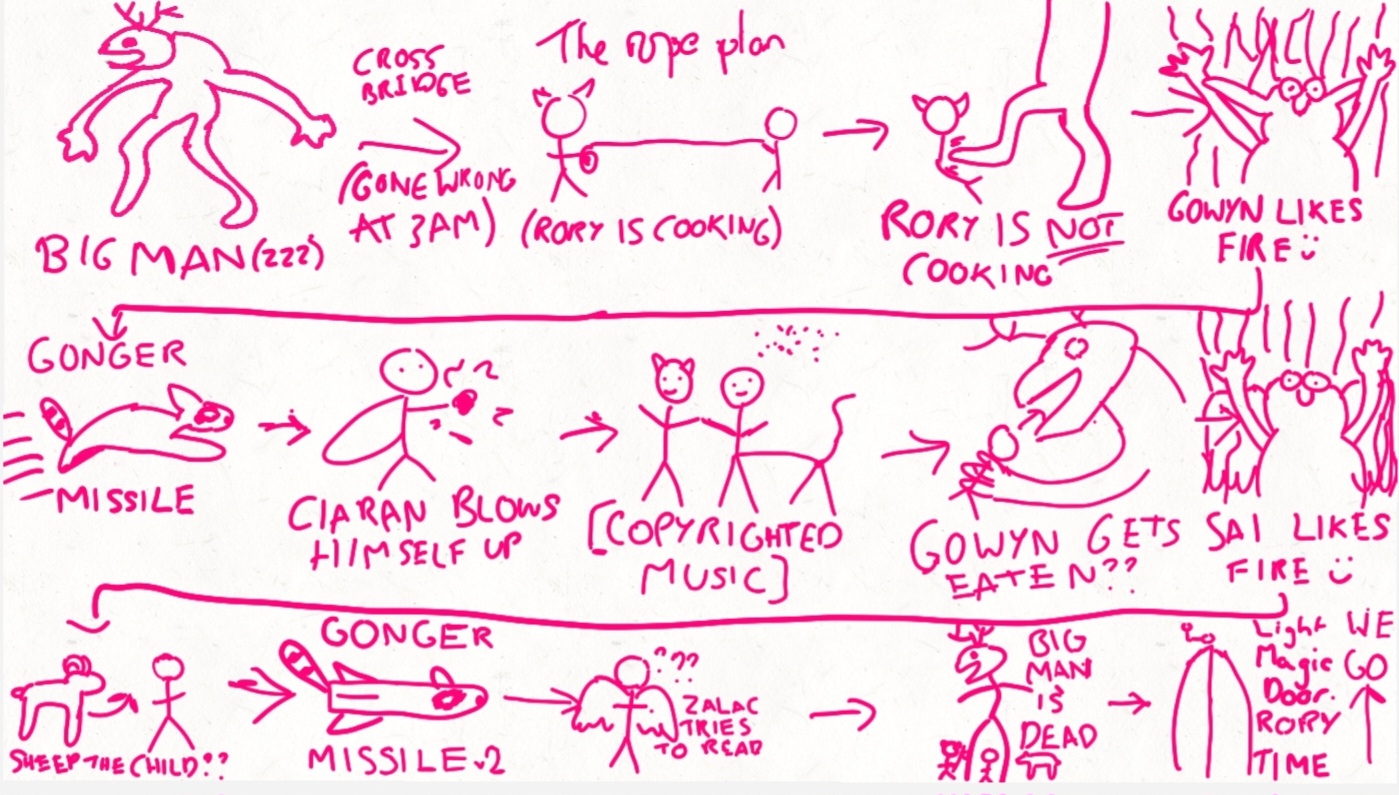 CROSS
BRIDGE
The rope plan
(GONE WRONG
AT 3AM)
BIG MAN (zzz)
(RORY IS COOKING)
RORY IS NOT
COOKING
GOWYN LIKES
FIRE
GONGER
MISSILE
CIARAN BLOWS
HIMSELF UP
[COPYRIGHTED
MUSIC]
GOWYN GETS
EATEN??
SAI LIKES
FIRE
SHEEP THE CHILD??
GONGER
MISSILE v2
???
ZALAC
TRIES
TO READ
BIG
MAN
IS
DEAD
Light
Magic
Door.
RORY
TIME
WE
GO